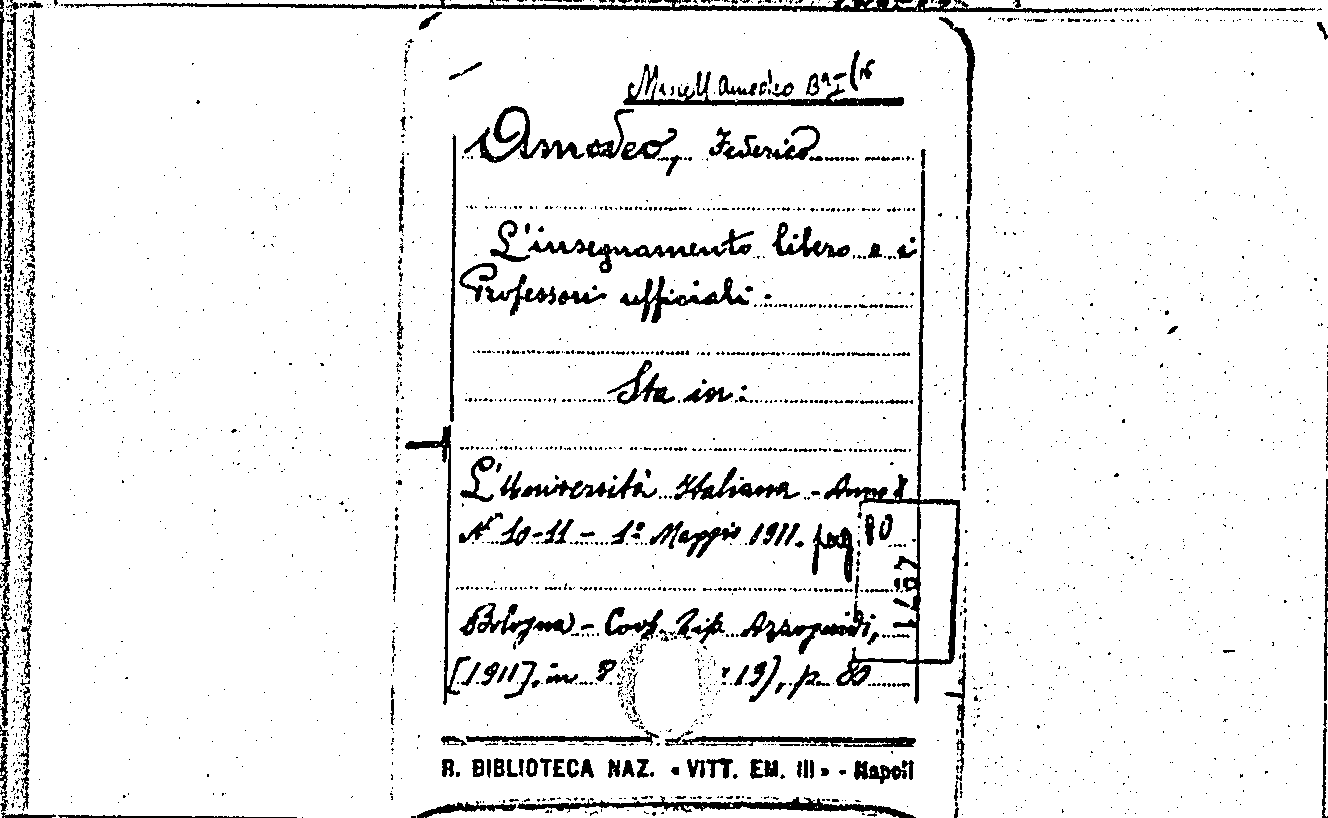 Miscell. Amodeo Bª I (16
Amodeo, Federico
L'insegnamento libero e i
Professori ufficiali.
Sta in:
L'Università Italiana - Anno X
Nº 10-11 - 1º Maggio 1911. pag 80
Bologna - Coop. Tip. Azzoguidi,
[1911], in 8 19), p. 80
R. BIBLIOTECA NAZ. «VITT. EM. III» - Napoli